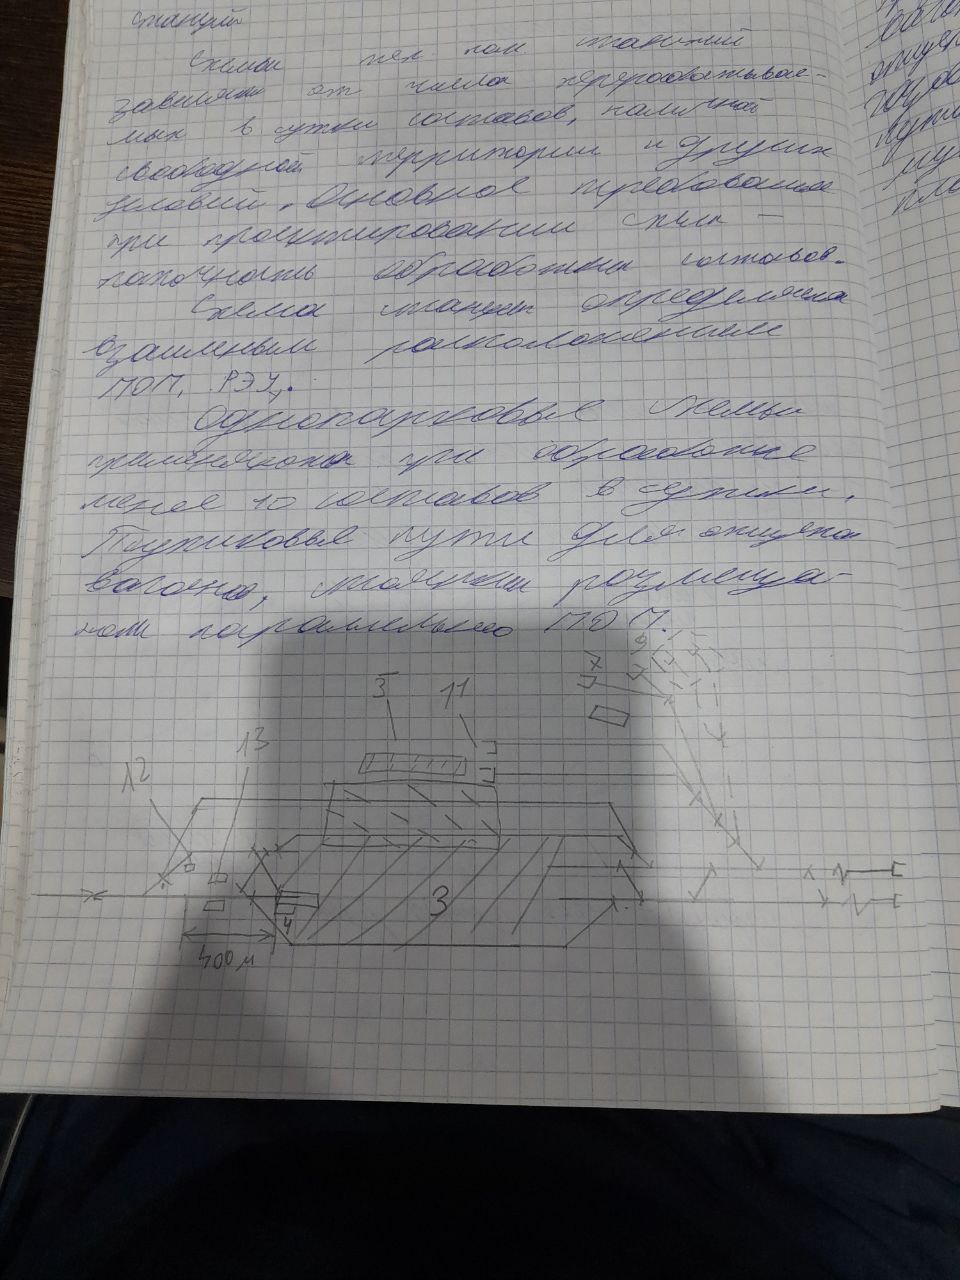 станций
Схемы тех пас станций
зависят от числа перерабатывае-
мых в сутки составов, наличной
свободной территории и других
условий. Основное требование
при проектировании схем —
поточность обработки составов.
Схема станции определяется
взаимным расположением
ПОП, РЭУ.
Однопарковые схемы
применяются при обработке
менее 10 составов в сутки.
Тупиковые пути для отцепки
вагонов, стоянки размеща-
ют параллельно ПОП.
5 11
12 13
3
4
400 м